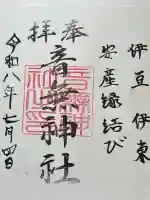 伊豆伊東
安産縁結び
奉拝
音無神社
令和八年七月四日